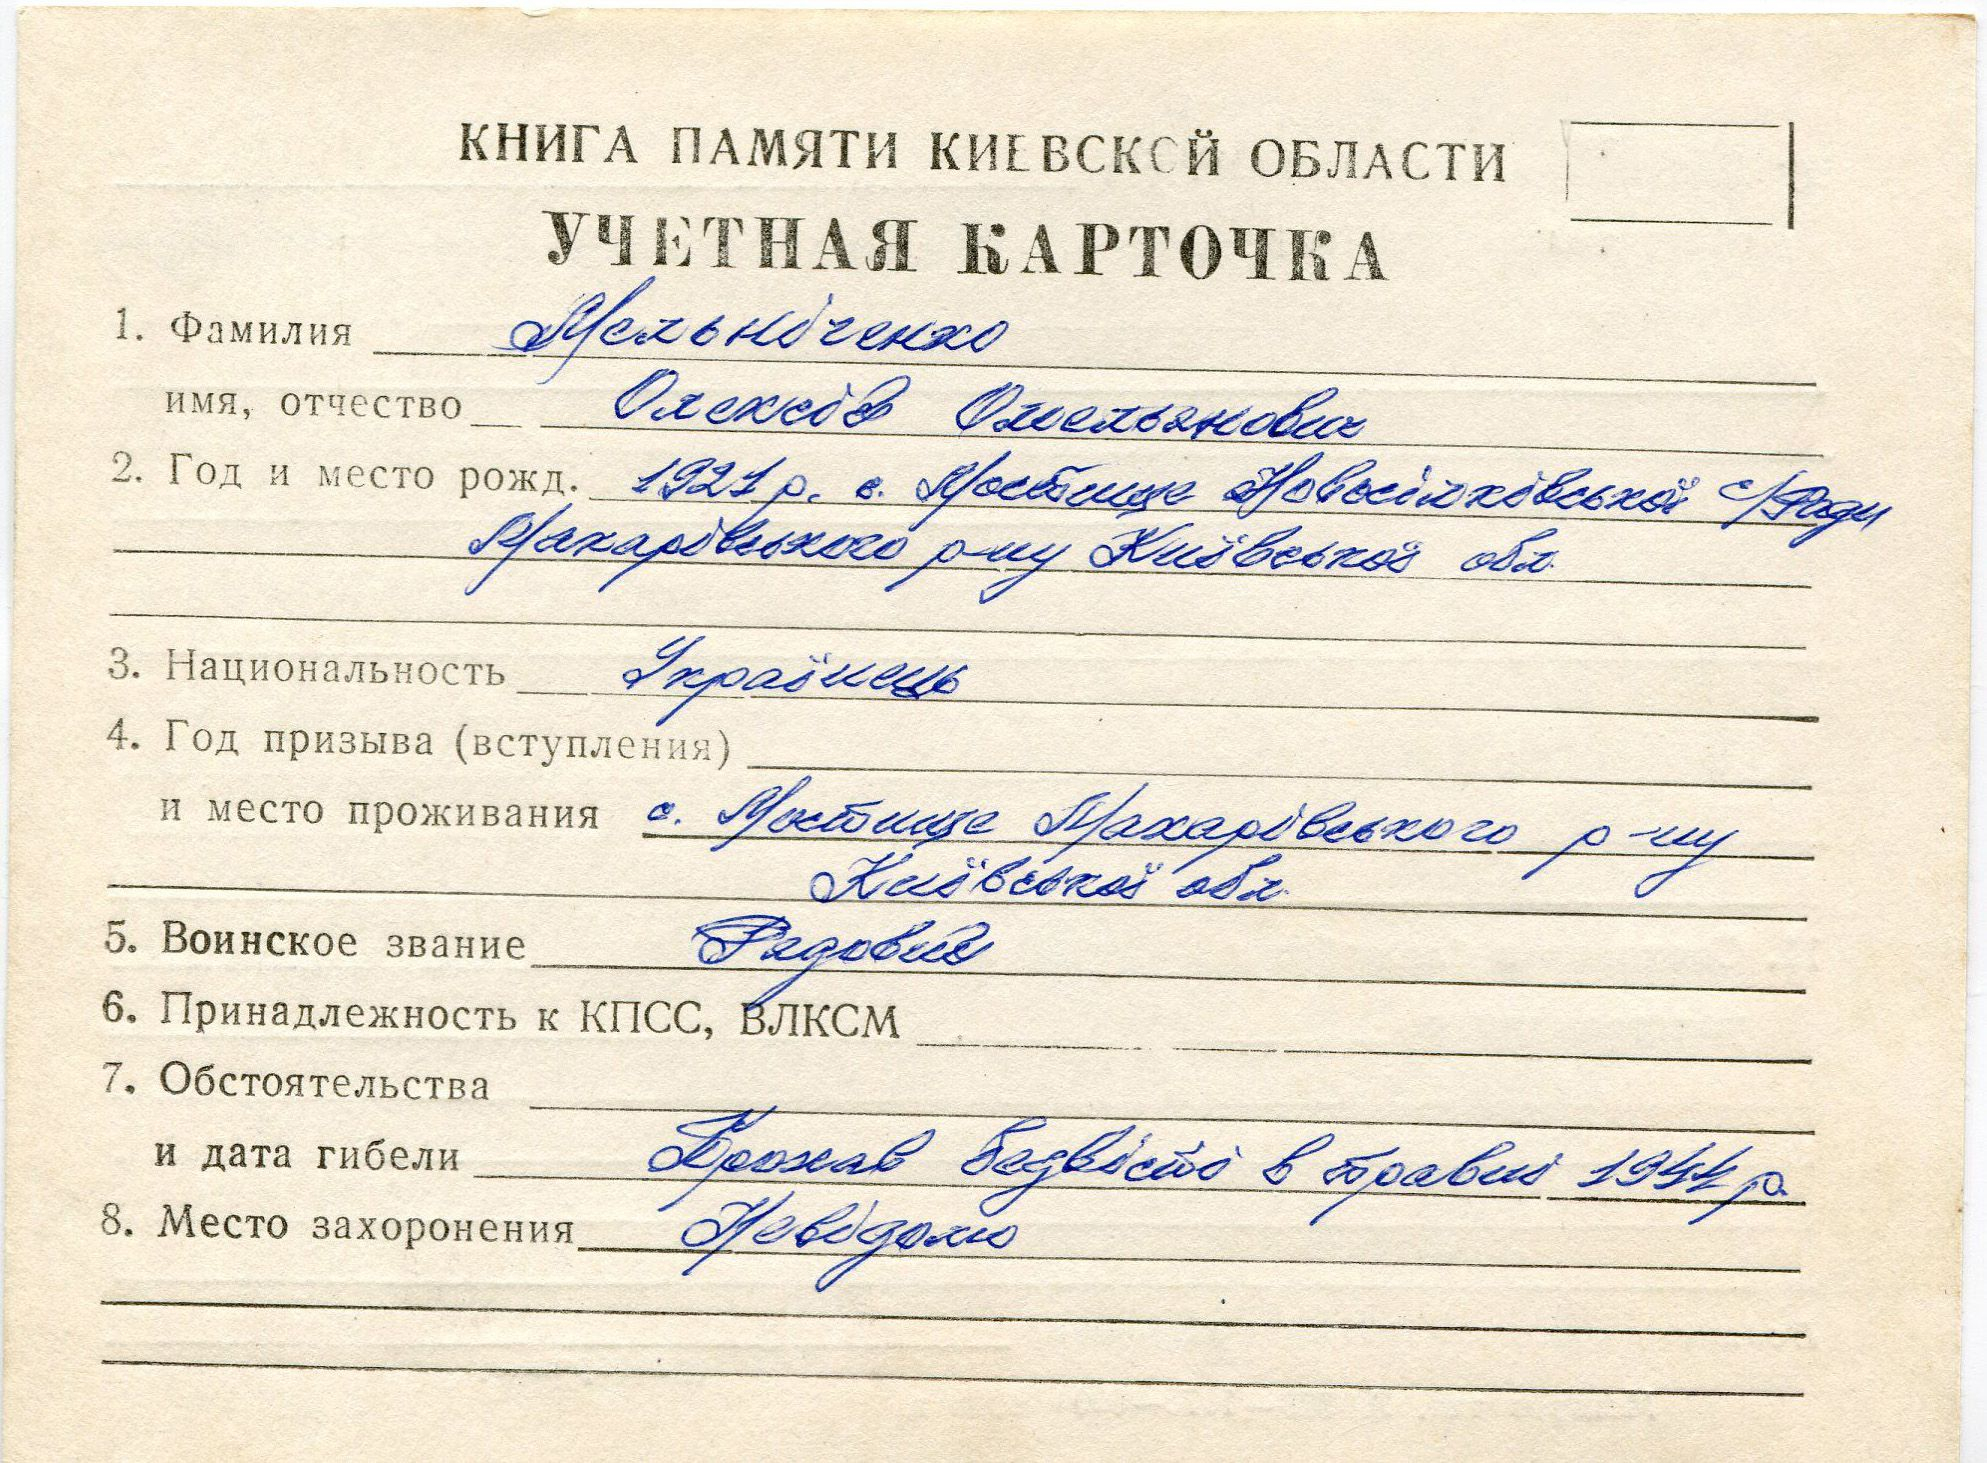 КНИГА ПАМЯТИ КИЕВСКОЙ ОБЛАСТИ
УЧЕТНАЯ КАРТОЧКА
1. Фамилия Мельніченко
имя, отчество Олексій Омельянович
2. Год и место рожд. 1921 р. с. Мостище Новосілківської с/Ради
Макарівського р-ну Київської обл.
3. Национальность Українець
4. Год призыва (вступления)
и место проживания с. Мостище Макарівського р-ну
Київської обл.
5. Воинское звание Рядовий
6. Принадлежность к КПСС, ВЛКСМ
7. Обстоятельства
и дата гибели Пропав безвісті в травні 1944 р.
8. Место захоронения Невідомо